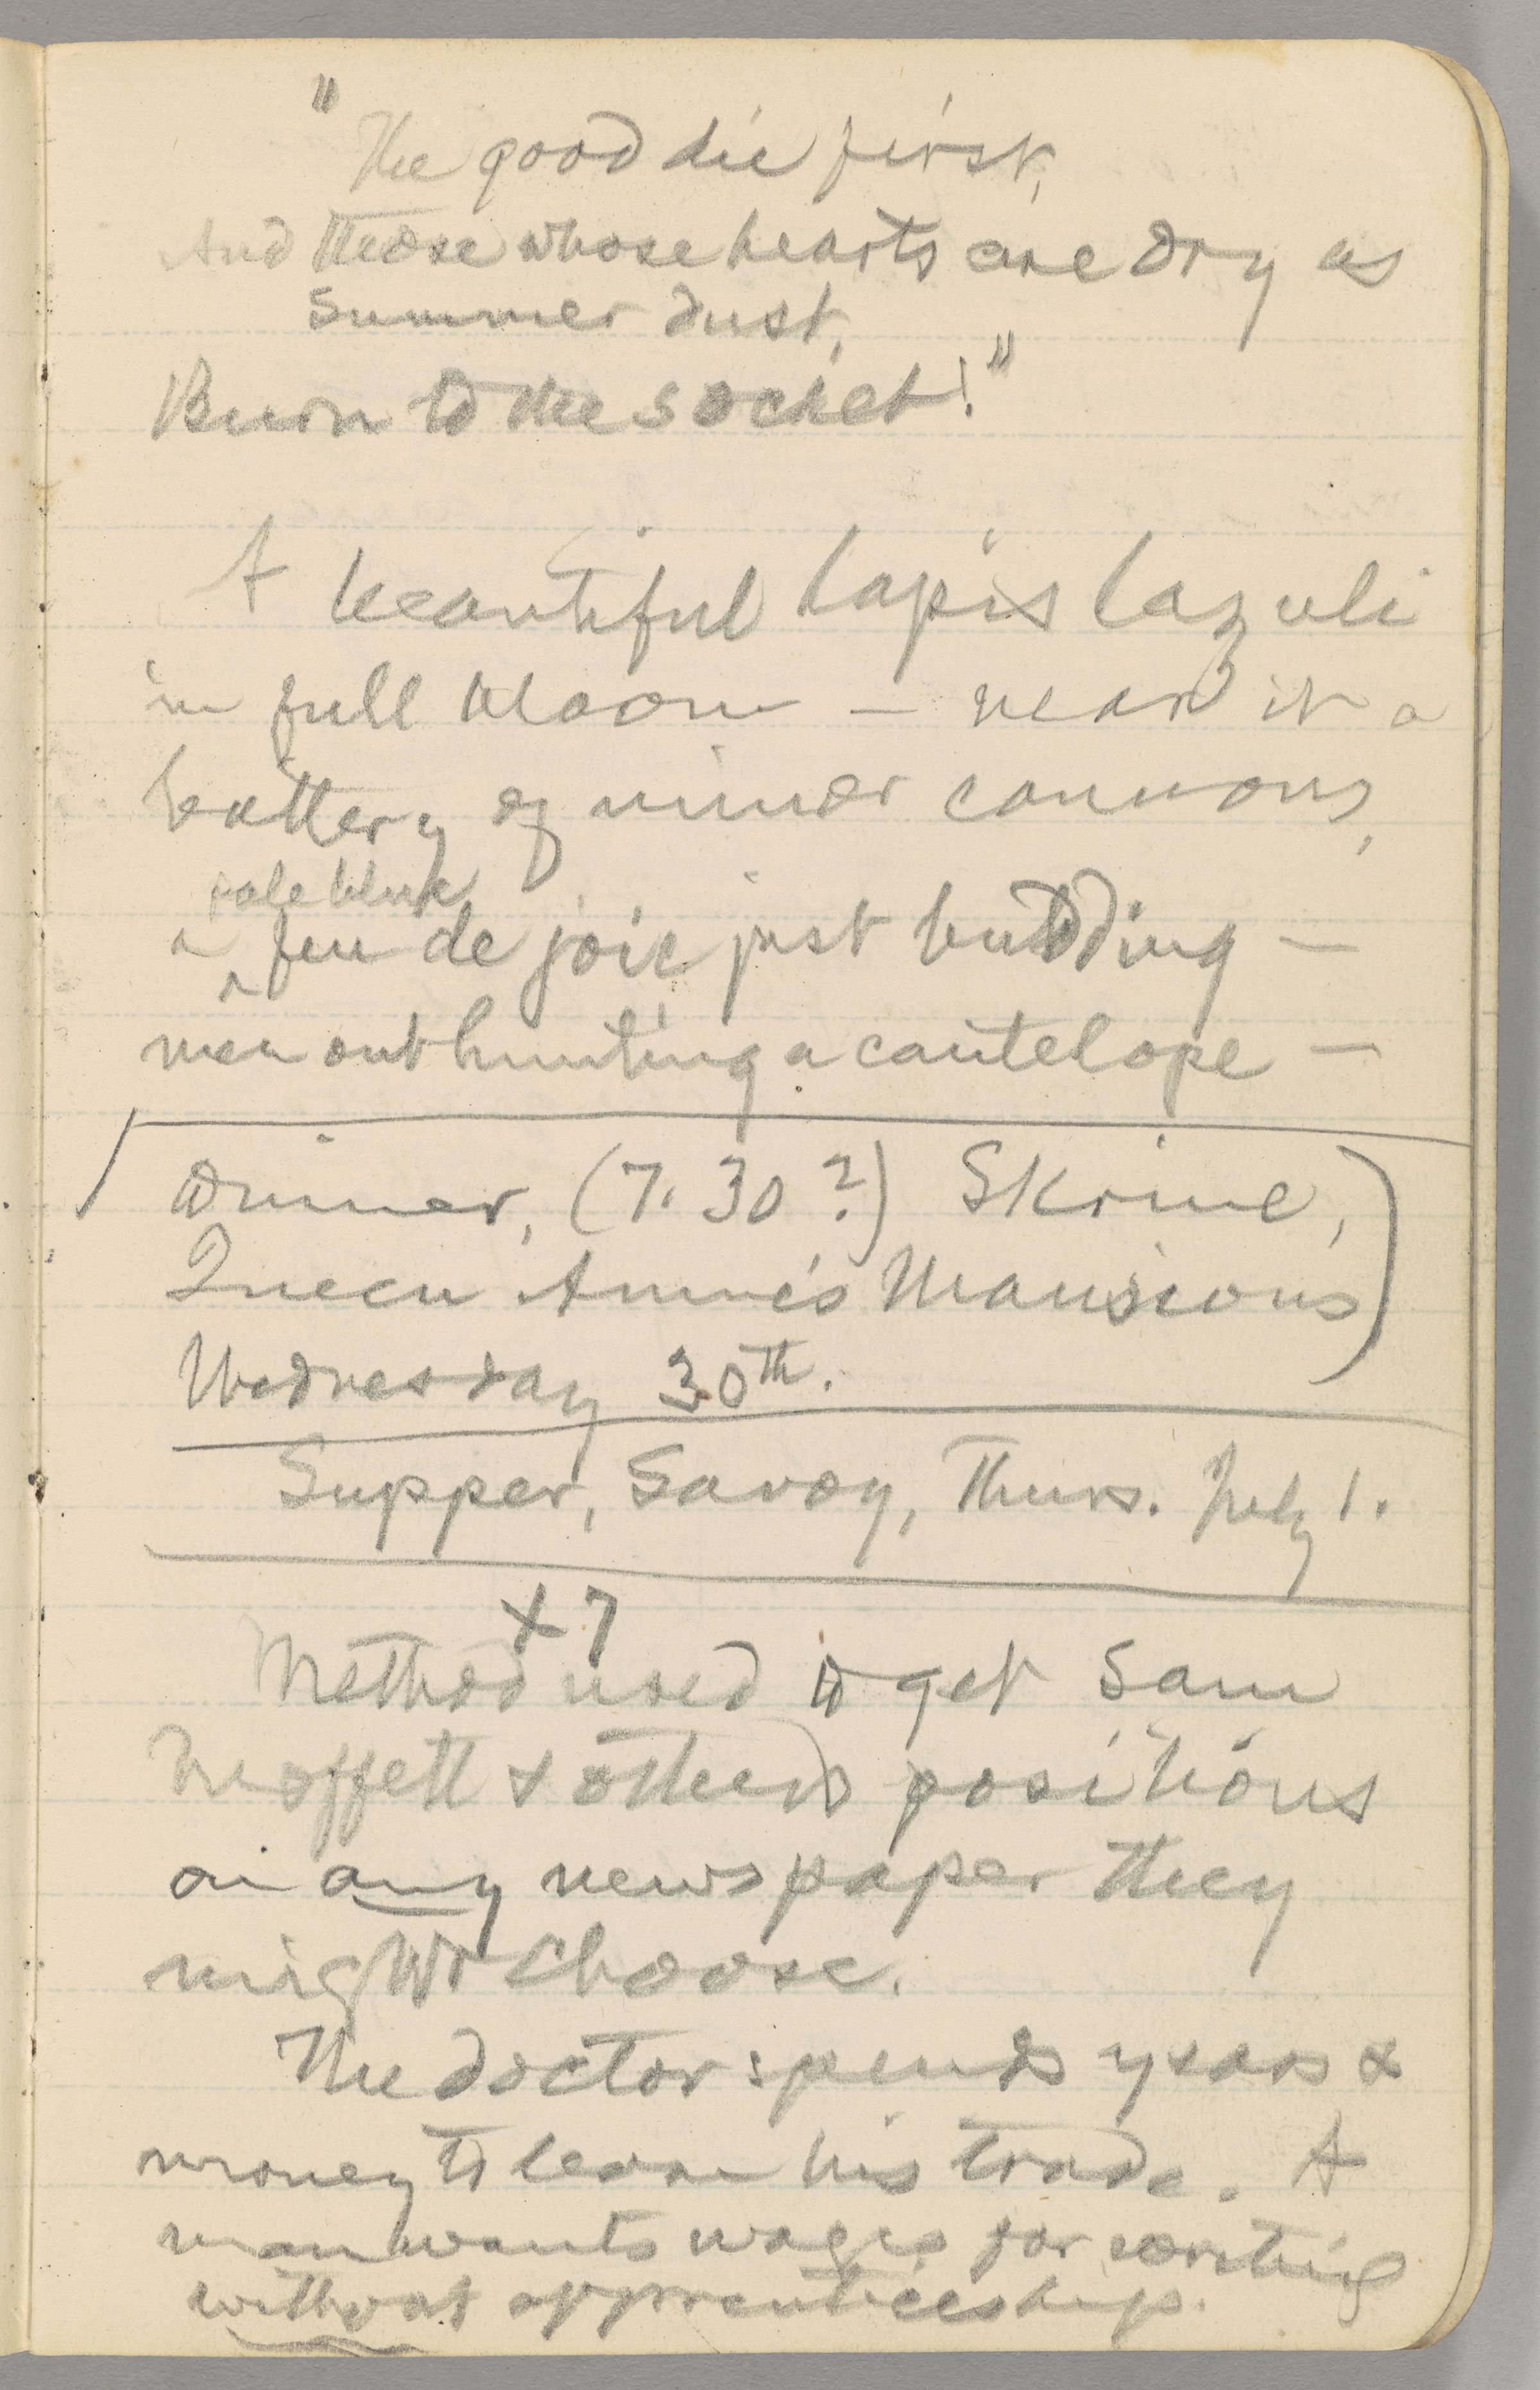 "The good die first,
And those whose hearts are dry as
summer dust,
Burn to the socket!"
A beautiful lapis lazuli
in full bloom — near it a
battery of minor cannons,
pale blue
a ^ feu de joie just budding —
men out hunting a cantelope —
Dinner, (7.30?) Skrine,
Queen Anne's Mansions)
Wednesday 30th.
Supper, Savoy, Thurs. July 1.
X 7
Method used to get Sam
Moffett & others positions
on any newspaper they
might choose.
The doctor spends years &
money to learn his trade. A
man wants wages for writing
without apprenticeship.